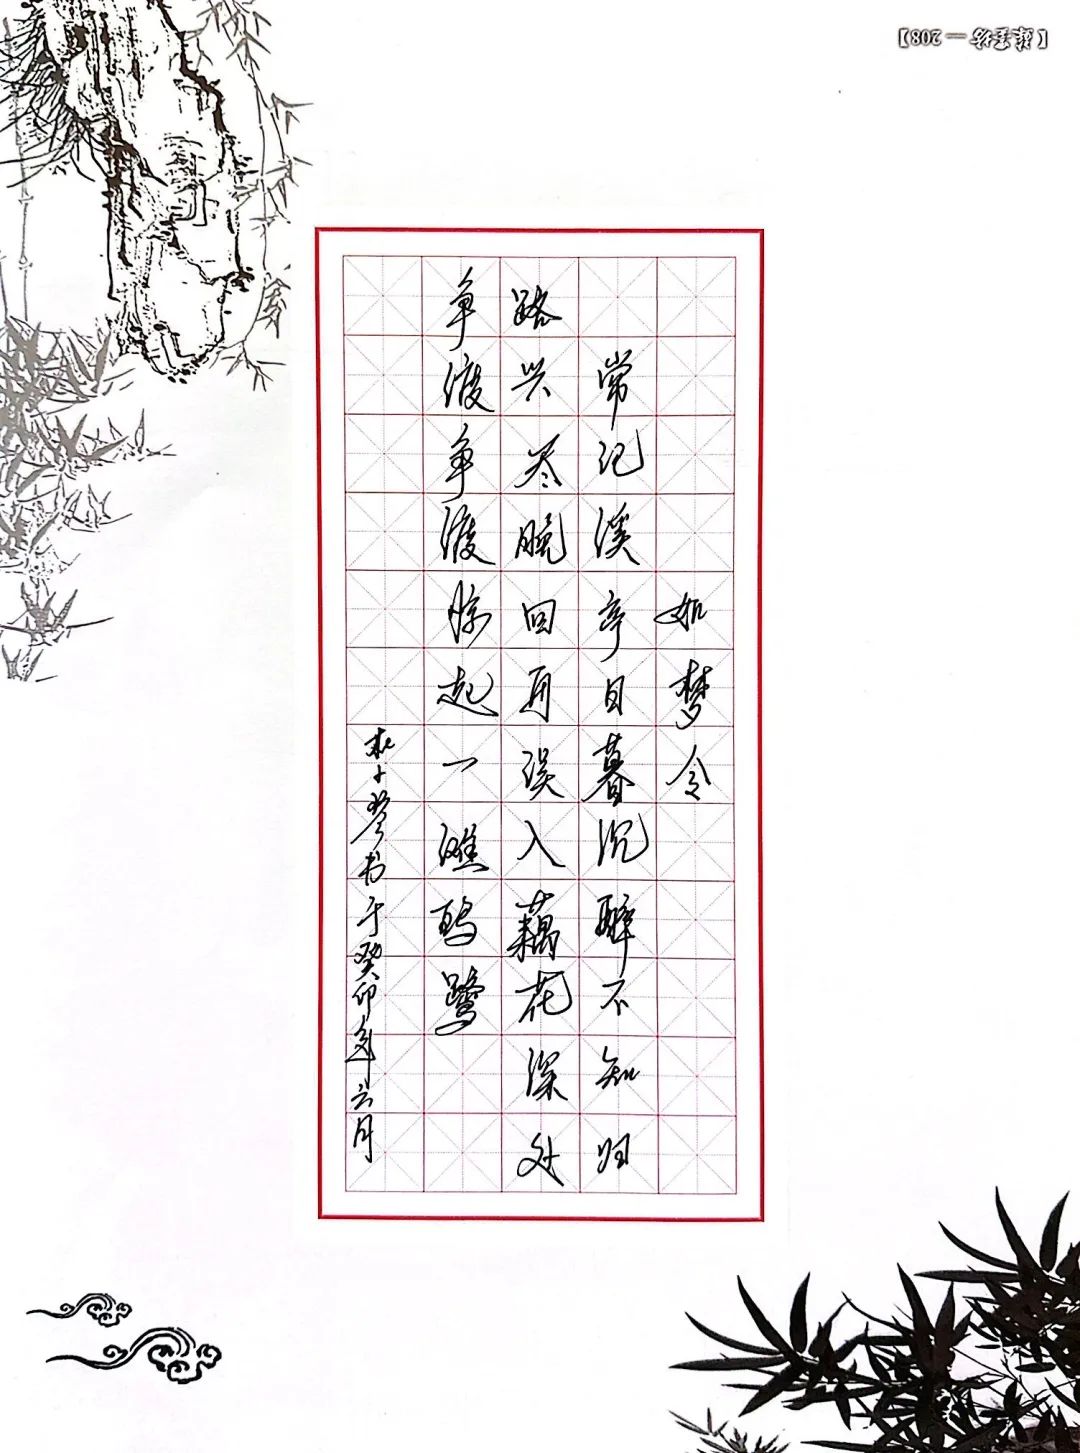 如梦令
常记溪亭日暮沉醉不知归
路兴尽晚回舟误入藕花深处
争渡争渡惊起一滩鸥鹭
琴书于癸卯年六月
208】